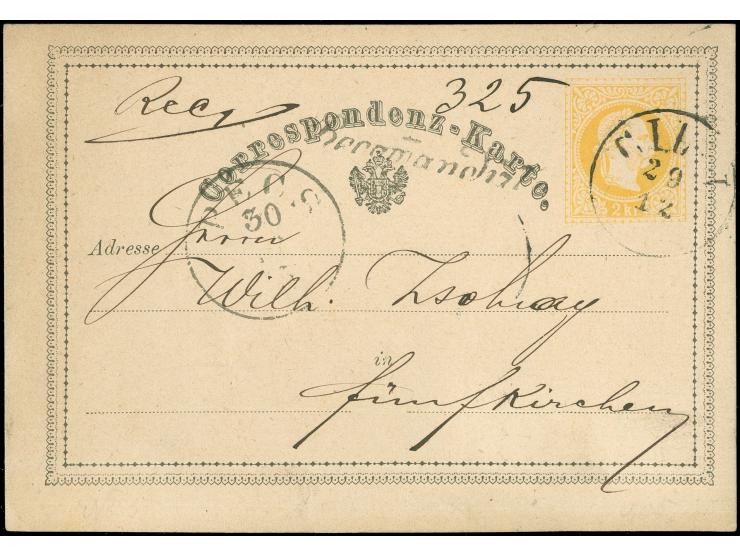 Recp 325
Correspondenz-Karte.
Recomandirt
CILLI
29
12
2 KR
30
Adresse
Herrn
Wilh. Zsolnay
in
Fünfkirchen